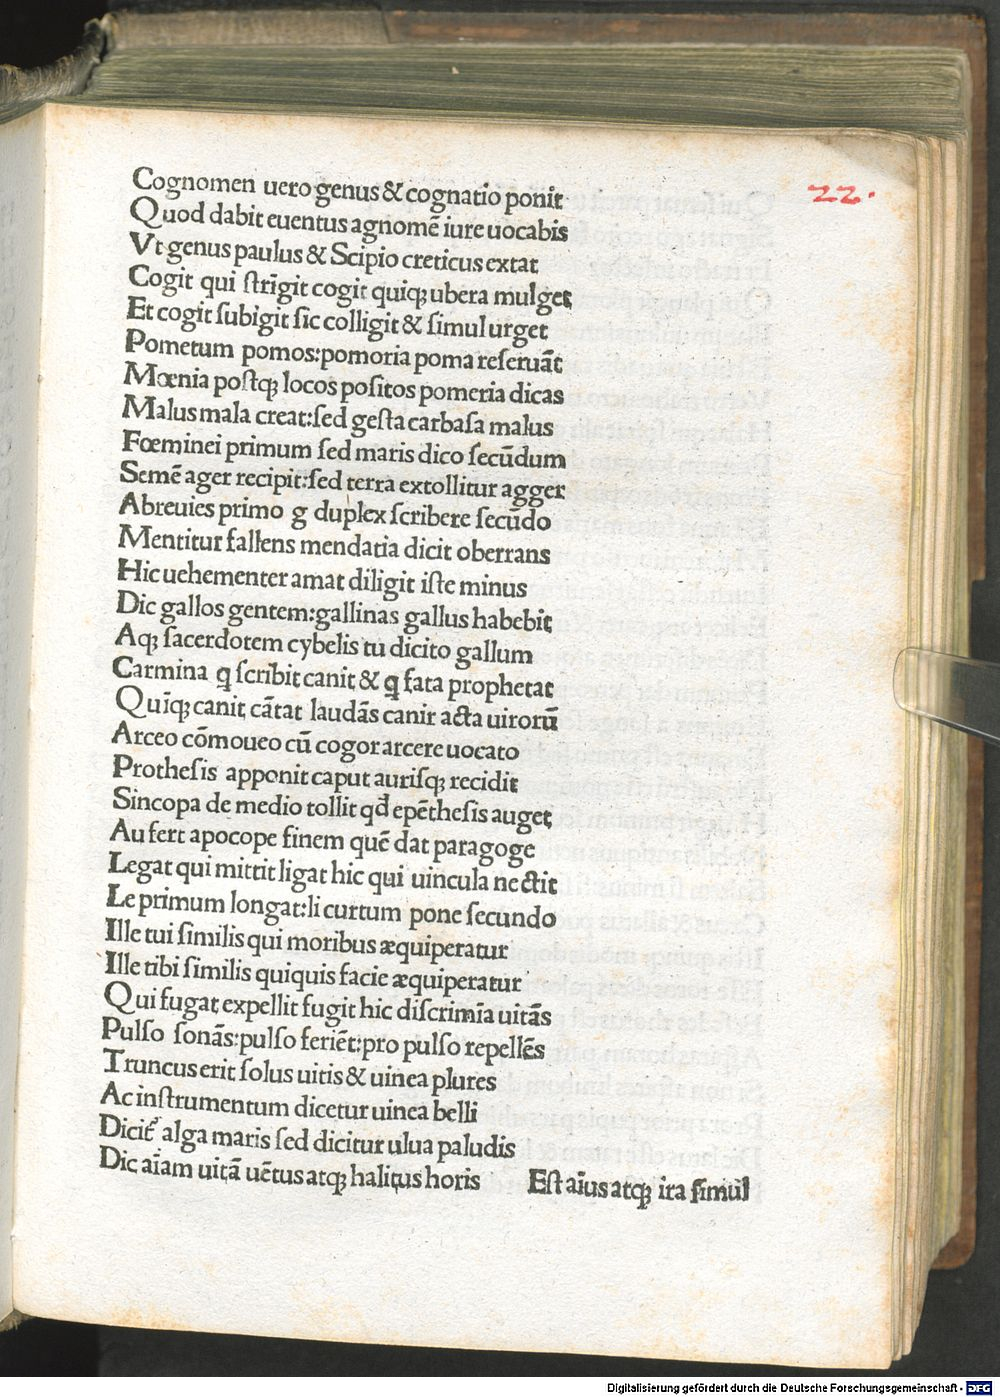 22.
Cognomen uero genus & cognatio ponit
Quod dabit euentus agnomē iure uocabis
Vt genus paulus & Scipio creticus extat
Cogit qui strīgit cogit quiqꝫ ubera mulget
Et cogit subigit sic colligit & simul urget
Pometum pomos:pomoria poma reseruāt
Mœnia postqꝫ locos positos pomeria dicas
Malus mala creat:sed gesta carbasa malus
Fœminei primum sed maris dico secūdum
Semē ager recipit:sed terra extollitur agger
Abreuies primo g duplex scribere secūdo
Mentitur fallens mendatia dicit oberrans
Hic uehementer amat diligit iste minus
Dic gallos gentem:gallinas gallus habebit
Aqꝫ sacerdotem cybelis tu dicito gallum
Carmina q̄ scribit canit & q̄ fata prophetat
Quiqꝫ canit cātat laudās canit acta uirorū
Arceo cōmoueo cū cogor arcere uocato
Prothesis apponit caput aurisqꝫ recidit
Sincopa de medio tollit qđ epēthesis auget
Aufert apocope finem quē dat paragoge
Legat qui mittit ligat hic qui uincula nectit
Le primum longat:li curtum pone secundo
Ille tui similis qui moribus æquiperatur
Ille tibi similis quiquis facie æquiperatur
Qui fugat expellit fugit hic discrimīa uitās
Pulso sonās:pulso feriēt:pro pulso repellēs
Truncus erit solus uitis & uinea plures
Ac instrumentum dicetur uinea belli
Dicit̄ alga maris sed dicitut ulua paludis
Dic aīam uitā uētus atqꝫ halitus horis Est aīus atqꝫ ira simul
Digitalisierung gefördert durch die Deutsche Forschungsgemeinschaft - DFG